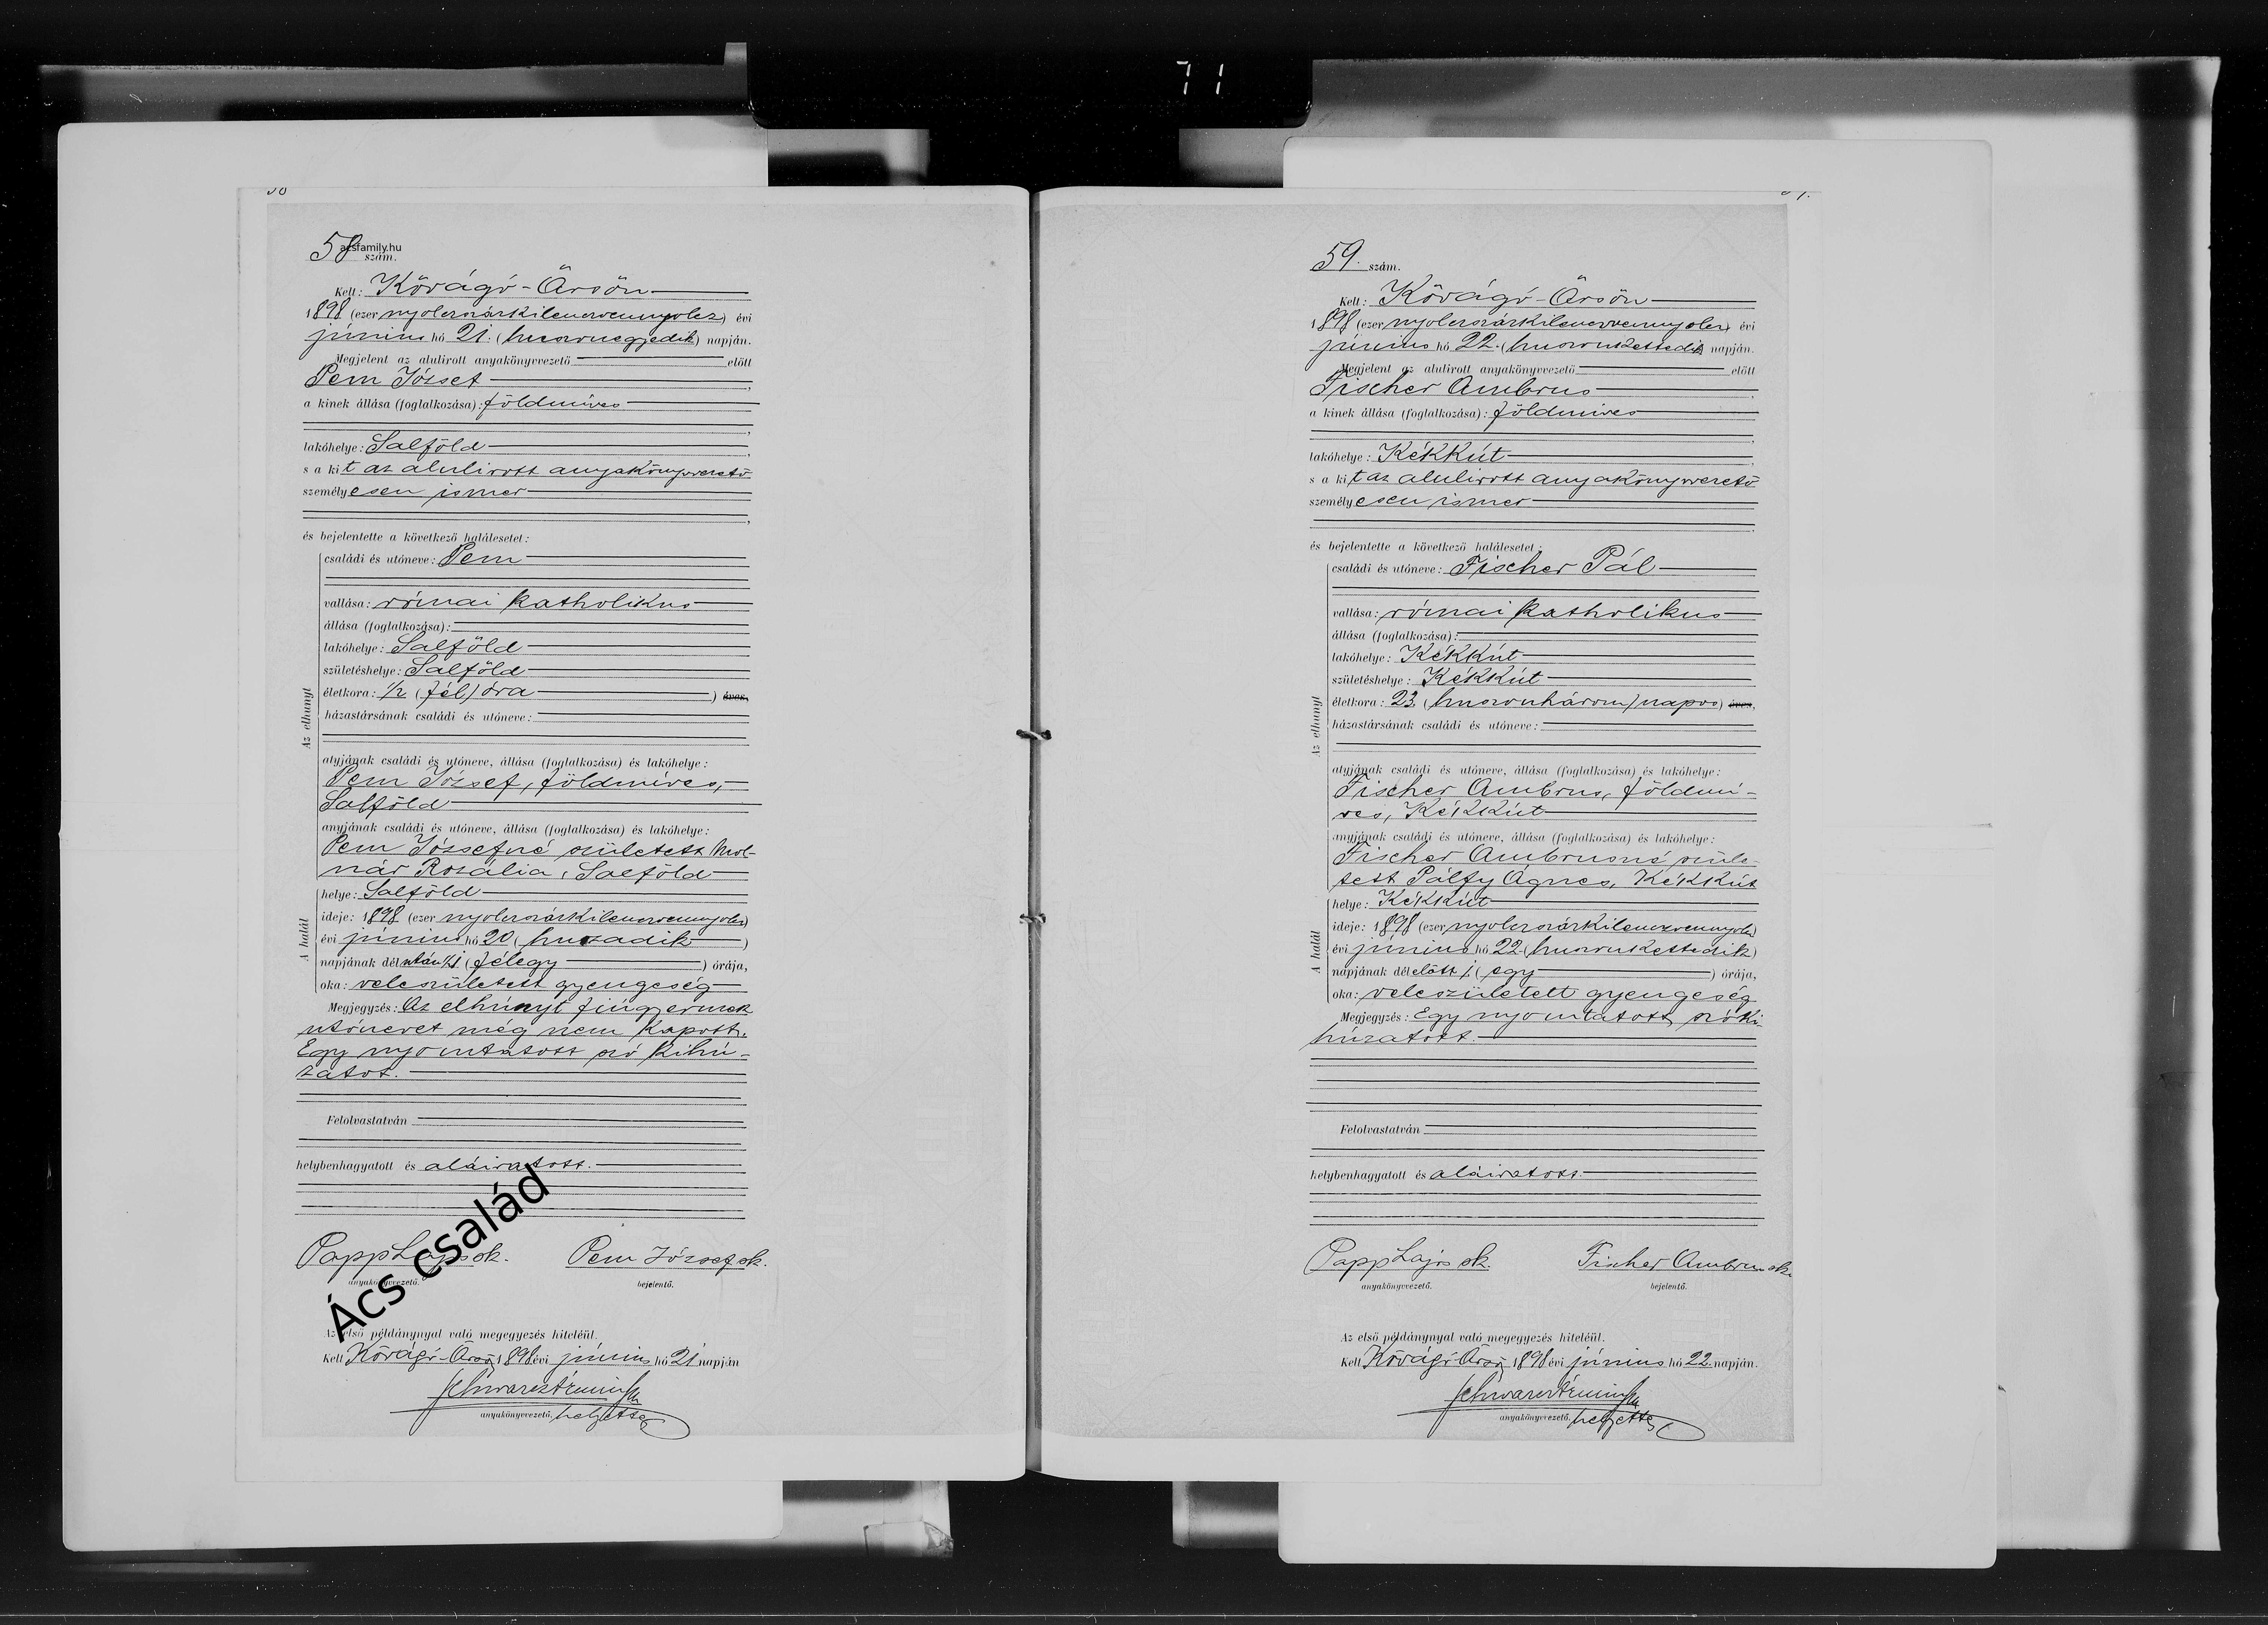 71
58 szám.
acsfamily.hu
Kelt: Kővágó-Örsön
1898 (ezer nyolczszázkilenczvennyolcz) évi
június hó 21. (huszonegyedik) napján.
Megjelent az alulirott anyakönyvvezető előtt
Pem József
a kinek állása (foglalkozása): földmíves
lakóhelye: Salföld
s a kit az alulirott anyakönyvvezető
személyesen ismer
és bejelentette a következő halálesetet:
Az elhunyt
családi és utóneve: Pem
vallása: római katholikus
állása (foglalkozása):
lakóhelye: Salföld
születéshelye: Salföld
életkora: 1/2 (fél) óra ) éves,
házastársának családi és utóneve:
atyjának családi és utóneve, állása (foglalkozása) és lakóhelye:
Pem József, földmíves,
Salföld
anyjának családi és utóneve, állása (foglalkozása) és lakóhelye:
Pem Józsefné született Mol-
nár Rozália, Salföld
A halál
helye: Salföld
ideje: 1898 (ezer nyolczszázkilenczvennyolcz)
évi június hó 20 (huszadik)
napjának délután 1/2 1 (félegy) órája,
oka: veleszületett gyengeség
Megjegyzés: Az elhúnyt fiúgyermek
utónevet még nem kapott.
Egy nyomtatott szó kihú-
zatot.
Felolvastatván
helybenhagyatott és aláiratott.
Papp Lajos sk. Pem József sk.
anyakönyvvezető. bejelentő.
Ács család
Az első példánynyal való megegyezés hiteléül.
Kelt Kővágó-Örsön 1898 évi június hó 21 napján
anyakönyvvezető. helyettes
59. szám.
Kelt: Kővágó-Örsön
1898 (ezer nyolczszázkilenczvennyolcz) évi
június hó 22. (huszonkettedik) napján.
Megjelent az alulirott anyakönyvvezető előtt
Fischer Ambrus
a kinek állása (foglalkozása): földmíves
lakóhelye: Kékkút
s a kit az alulirott anyakönyvvezető
személyesen ismer
és bejelentette a következő halálesetet:
Az elhunyt
családi és utóneve: Fischer Pál
vallása: római katholikus
állása (foglalkozása):
lakóhelye: Kékkút
születéshelye: Kékkút
életkora: 23 (huszonhárom) napos) éves,
házastársának családi és utóneve:
atyjának családi és utóneve, állása (foglalkozása) és lakóhelye:
Fischer Ambrus, földmí-
ves, Kékkút
anyjának családi és utóneve, állása (foglalkozása) és lakóhelye:
Fischer Ambrusné szüle-
tett Pálfy Ágnes, Kékkút
A halál
helye: Kékkút
ideje: 1898 (ezer nyolczszázkilenczvennyolcz)
évi június hó 22 (huszonkettedik)
napjának délelőtt 1 (egy) órája,
oka: veleszületett gyengeség
Megjegyzés: Egy nyomtatott szó ki-
húzatott.
Felolvastatván
helybenhagyatott és aláiratott.
Papp Lajos sk. Fischer Ambrus sk.
anyakönyvvezető. bejelentő.
Az első példánynyal való megegyezés hiteléül.
Kelt Kővágó-Örsön 1898 évi június hó 22. napján.
anyakönyvvezető. helyettes